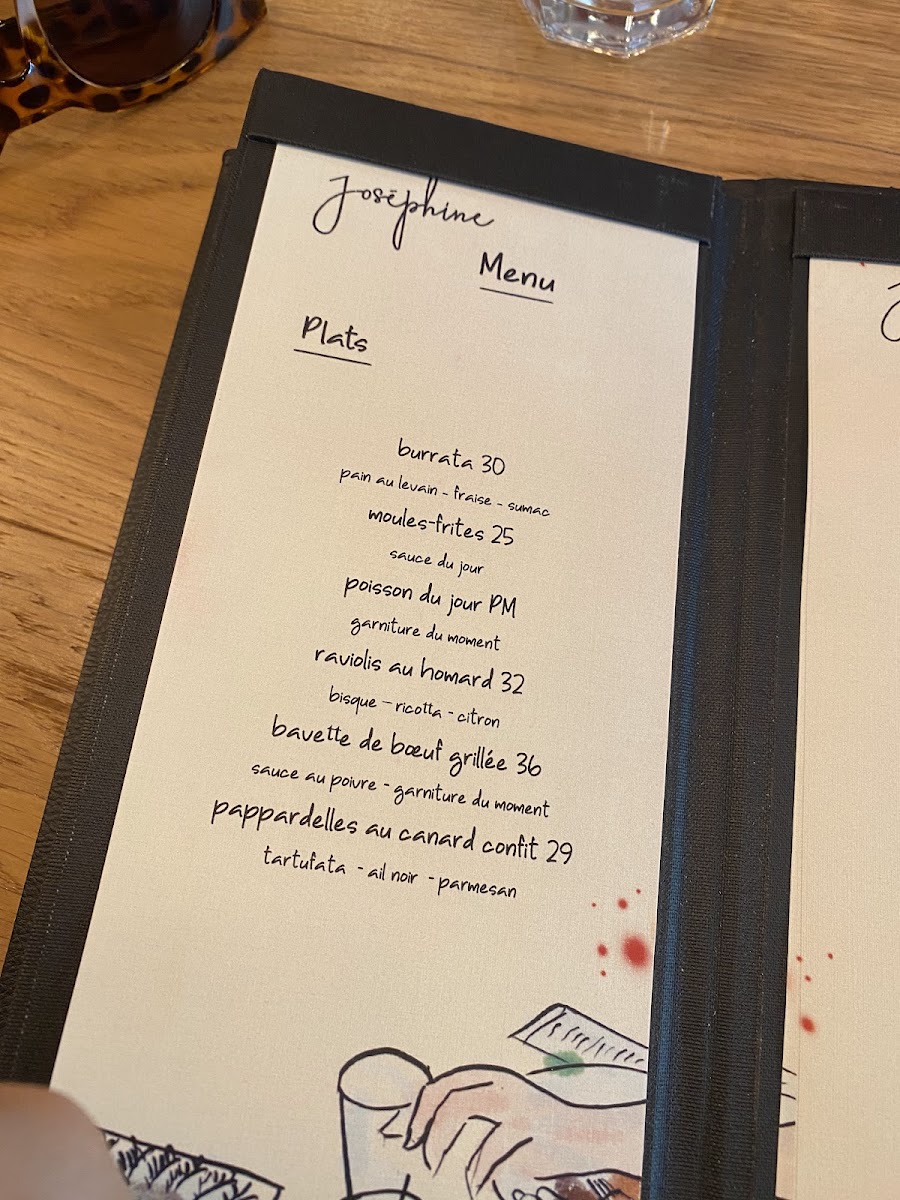 Joséphine
Menu
Plats
burrata 30
pain au levain - fraise - sumac
moules-frites 25
sauce du jour
poisson du jour PM
garniture du moment
raviolis au homard 32
bisque - ricotta - citron
bavette de bœuf grillée 36
sauce au poivre - garniture du moment
pappardelles au canard confit 29
tartufata - ail noir - parmesan